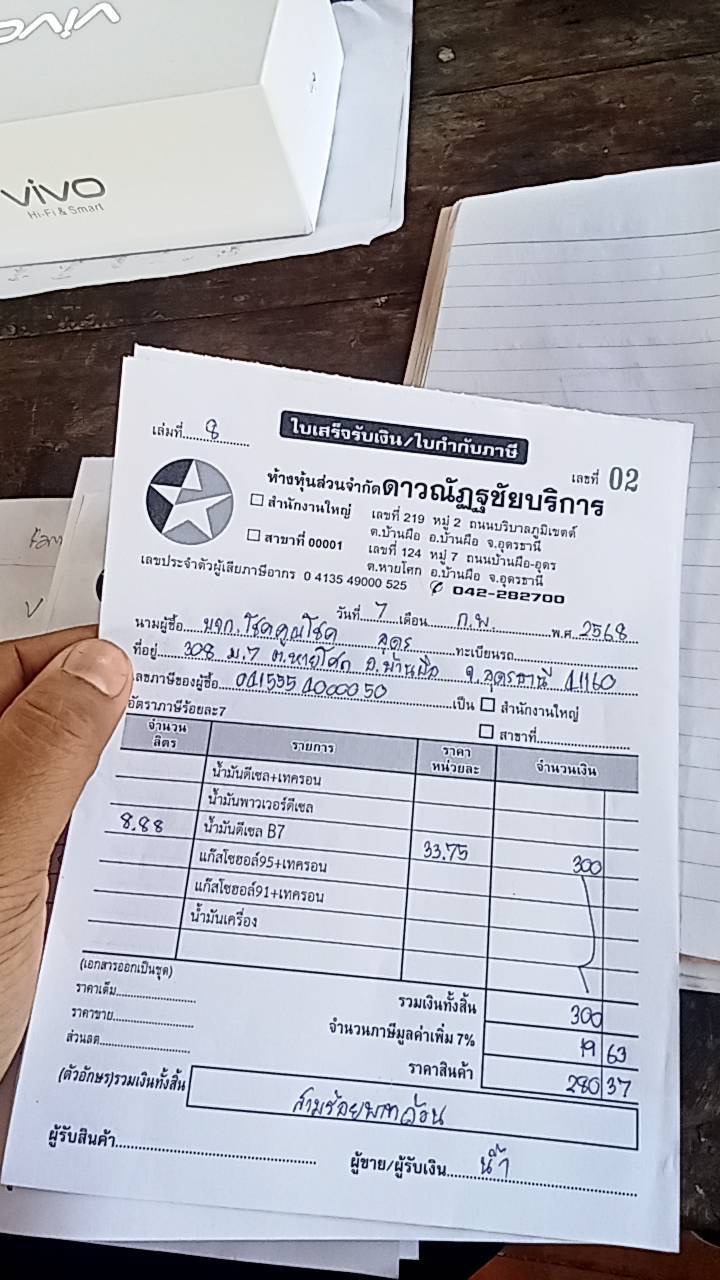 vivo
vivo
Hi-Fi & Smart
เล่มที่ 8
ใบเสร็จรับเงิน/ใบกำกับภาษี
เลขที่ 02
ห้างหุ้นส่วนจำกัดดาวณัฏฐชัยบริการ
สำนักงานใหญ่ เลขที่ 219 หมู่ 2 ถนนบริบาลภูมิเขตต์
ต.บ้านผือ อ.บ้านผือ จ.อุดรธานี
สาขาที่ 00001 เลขที่ 124 หมู่ 7 ถนนบ้านผือ-อุดร
ต.หายโศก อ.บ้านผือ จ.อุดรธานี
เลขประจำตัวผู้เสียภาษีอากร 0 4135 49000 525 042-282700
วันที่ 7 เดือน ก.พ. พ.ศ. 2568
นามผู้ซื้อ หจก.โชคคูณโชค อุดร ทะเบียนรถ
ที่อยู่ 308 ม.7 ต.หายโศก อ.บ้านผือ จ.อุดรธานี 41160
เลขภาษีของผู้ซื้อ 0415554000050 เป็น สำนักงานใหญ่
อัตราภาษีร้อยละ7 สาขาที่
จำนวนลิตร รายการ ราคาหน่วยละ จำนวนเงิน
น้ำมันดีเซล+เทครอน
น้ำมันพาวเวอร์ดีเซล
8.88 น้ำมันดีเซล B7 33.75 300
แก๊สโซฮอล์95+เทครอน
แก๊สโซฮอล์91+เทครอน
น้ำมันเครื่อง
(เอกสารออกเป็นชุด)
ราคาเต็ม รวมเงินทั้งสิ้น 300
ราคาขาย จำนวนภาษีมูลค่าเพิ่ม 7% 19 63
ส่วนลด ราคาสินค้า 280 37
(ตัวอักษร)รวมเงินทั้งสิ้น สามร้อยบาทถ้วน
ผู้รับสินค้า ผู้ขาย/ผู้รับเงิน